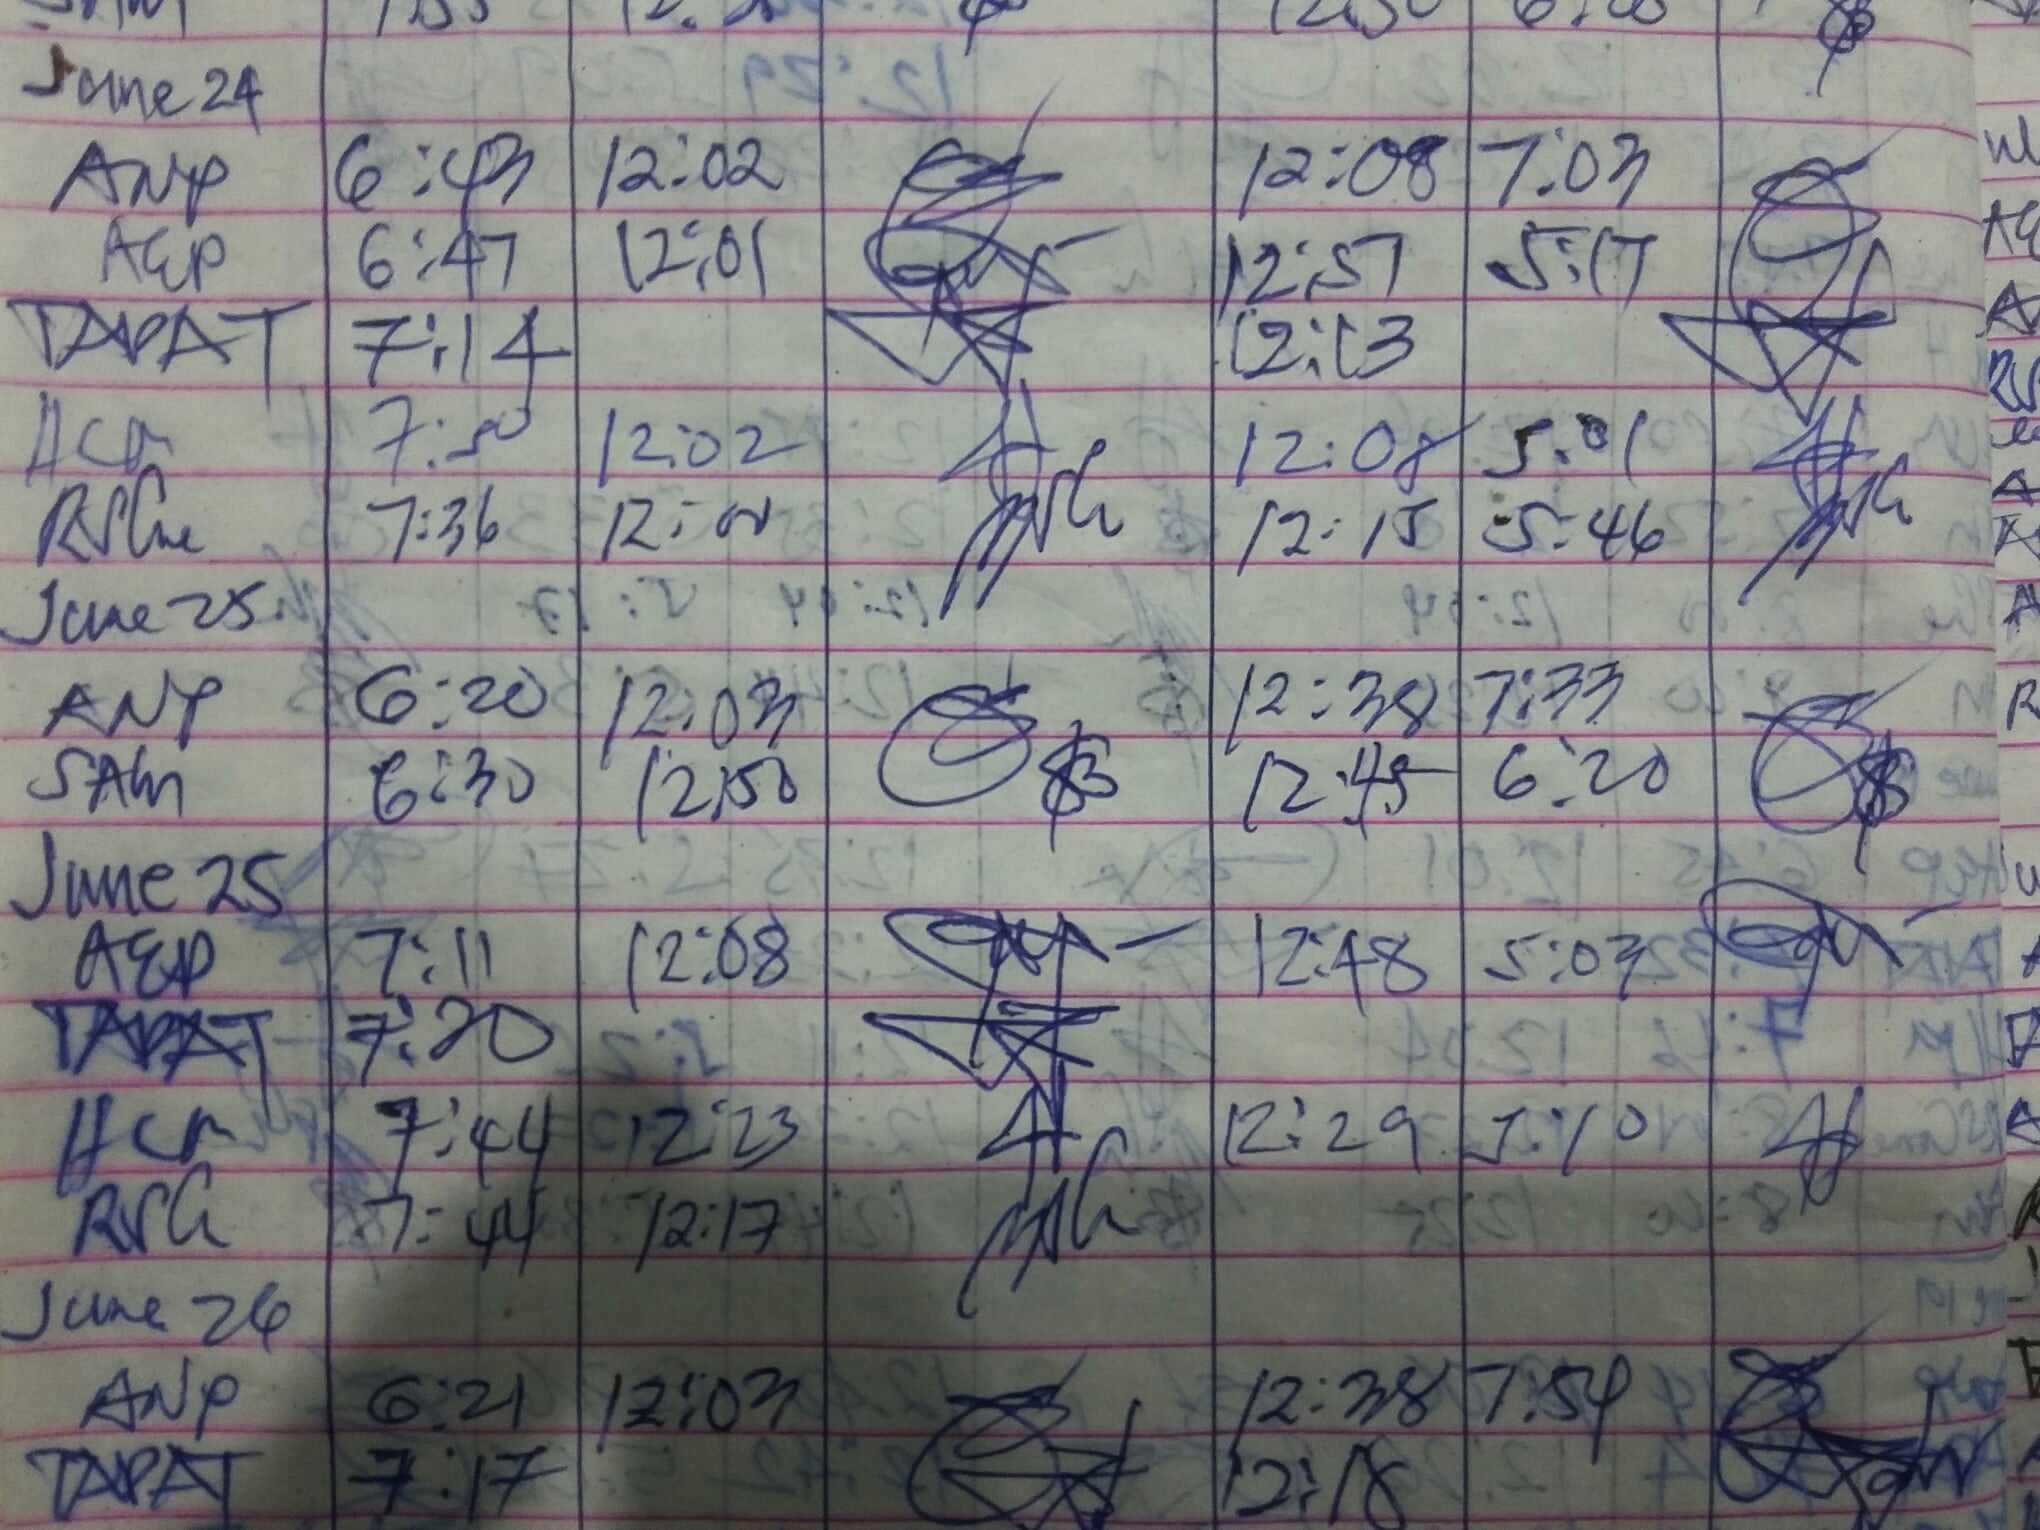 June 24
ANP 6:43 12:02 12:08 7:03
AEP 6:47 12:01 12:57 5:17
TAPAT 7:14 12:13
HCM 7:50 12:02 12:08 5:01
7:36 12:15 5:46
June 25
ANP 6:20 12:03 12:38 7:33
SAM 6:30 12:50 12:45 6:20
June 25
AEP 7:11 12:08 12:48 5:03
TAPAT 7:20
HCM 7:44 12:23 12:29 5:10
RSG 7:44 12:17
June 26
ANP 6:21 12:03 12:38 7:54
TAPAT 7:17 12:18